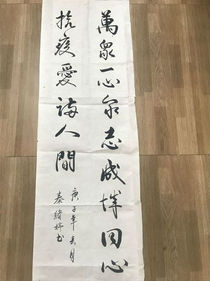 萬眾一心眾志成城同心
抗疫愛滿人間
庚子年月
秦書